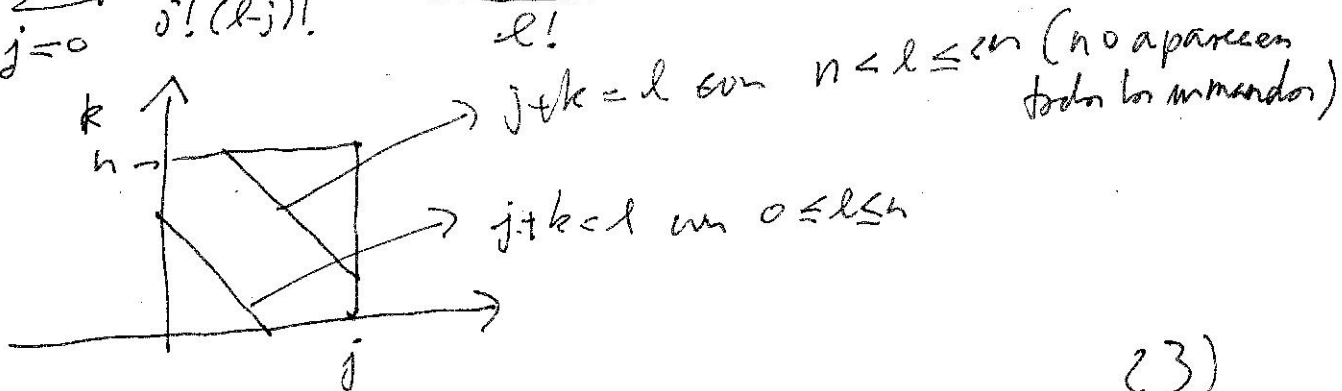 j=0 j!(l-j)! l!
j+k=l con n<l≤2n (no aparecen
todos los sumandos)
k
n
j+k=l con 0≤l≤n
j
23)